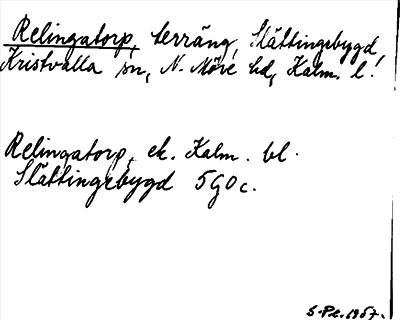 Relingatorp, terräng, Slättingebygd,
Kristvalla sn, N. Möre hd, Kalm. l.
Relingatorp, ek. Kalm. bl.
Slättingebygd 5G0c.
1957.